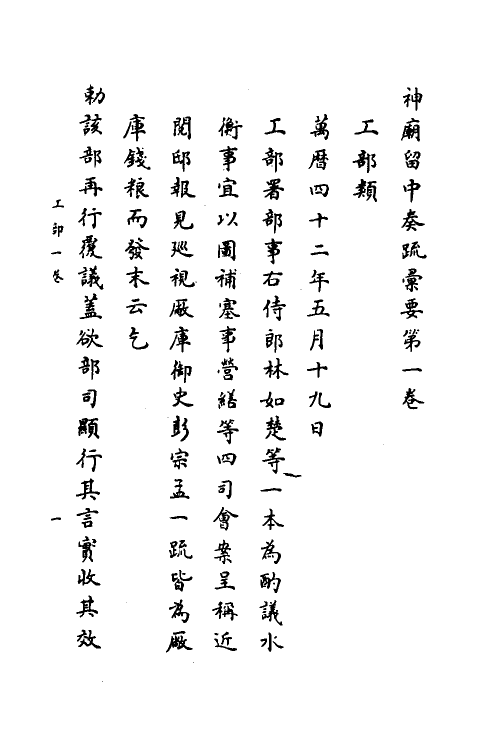 神廟留中奏疏彙要第一卷
工部類
萬曆四十二年五月十九日
工部署部事右侍郎林如楚等一本為酌議水
衡事宜以圖補塞事營繕等四司會案呈稱近
閱邸報見廵視厰庫御史彭宗孟一疏皆為厰
庫錢粮而發末云乞
勅該部再行覆議蓋欲部司顯行其言實收其效
工部一卷
一